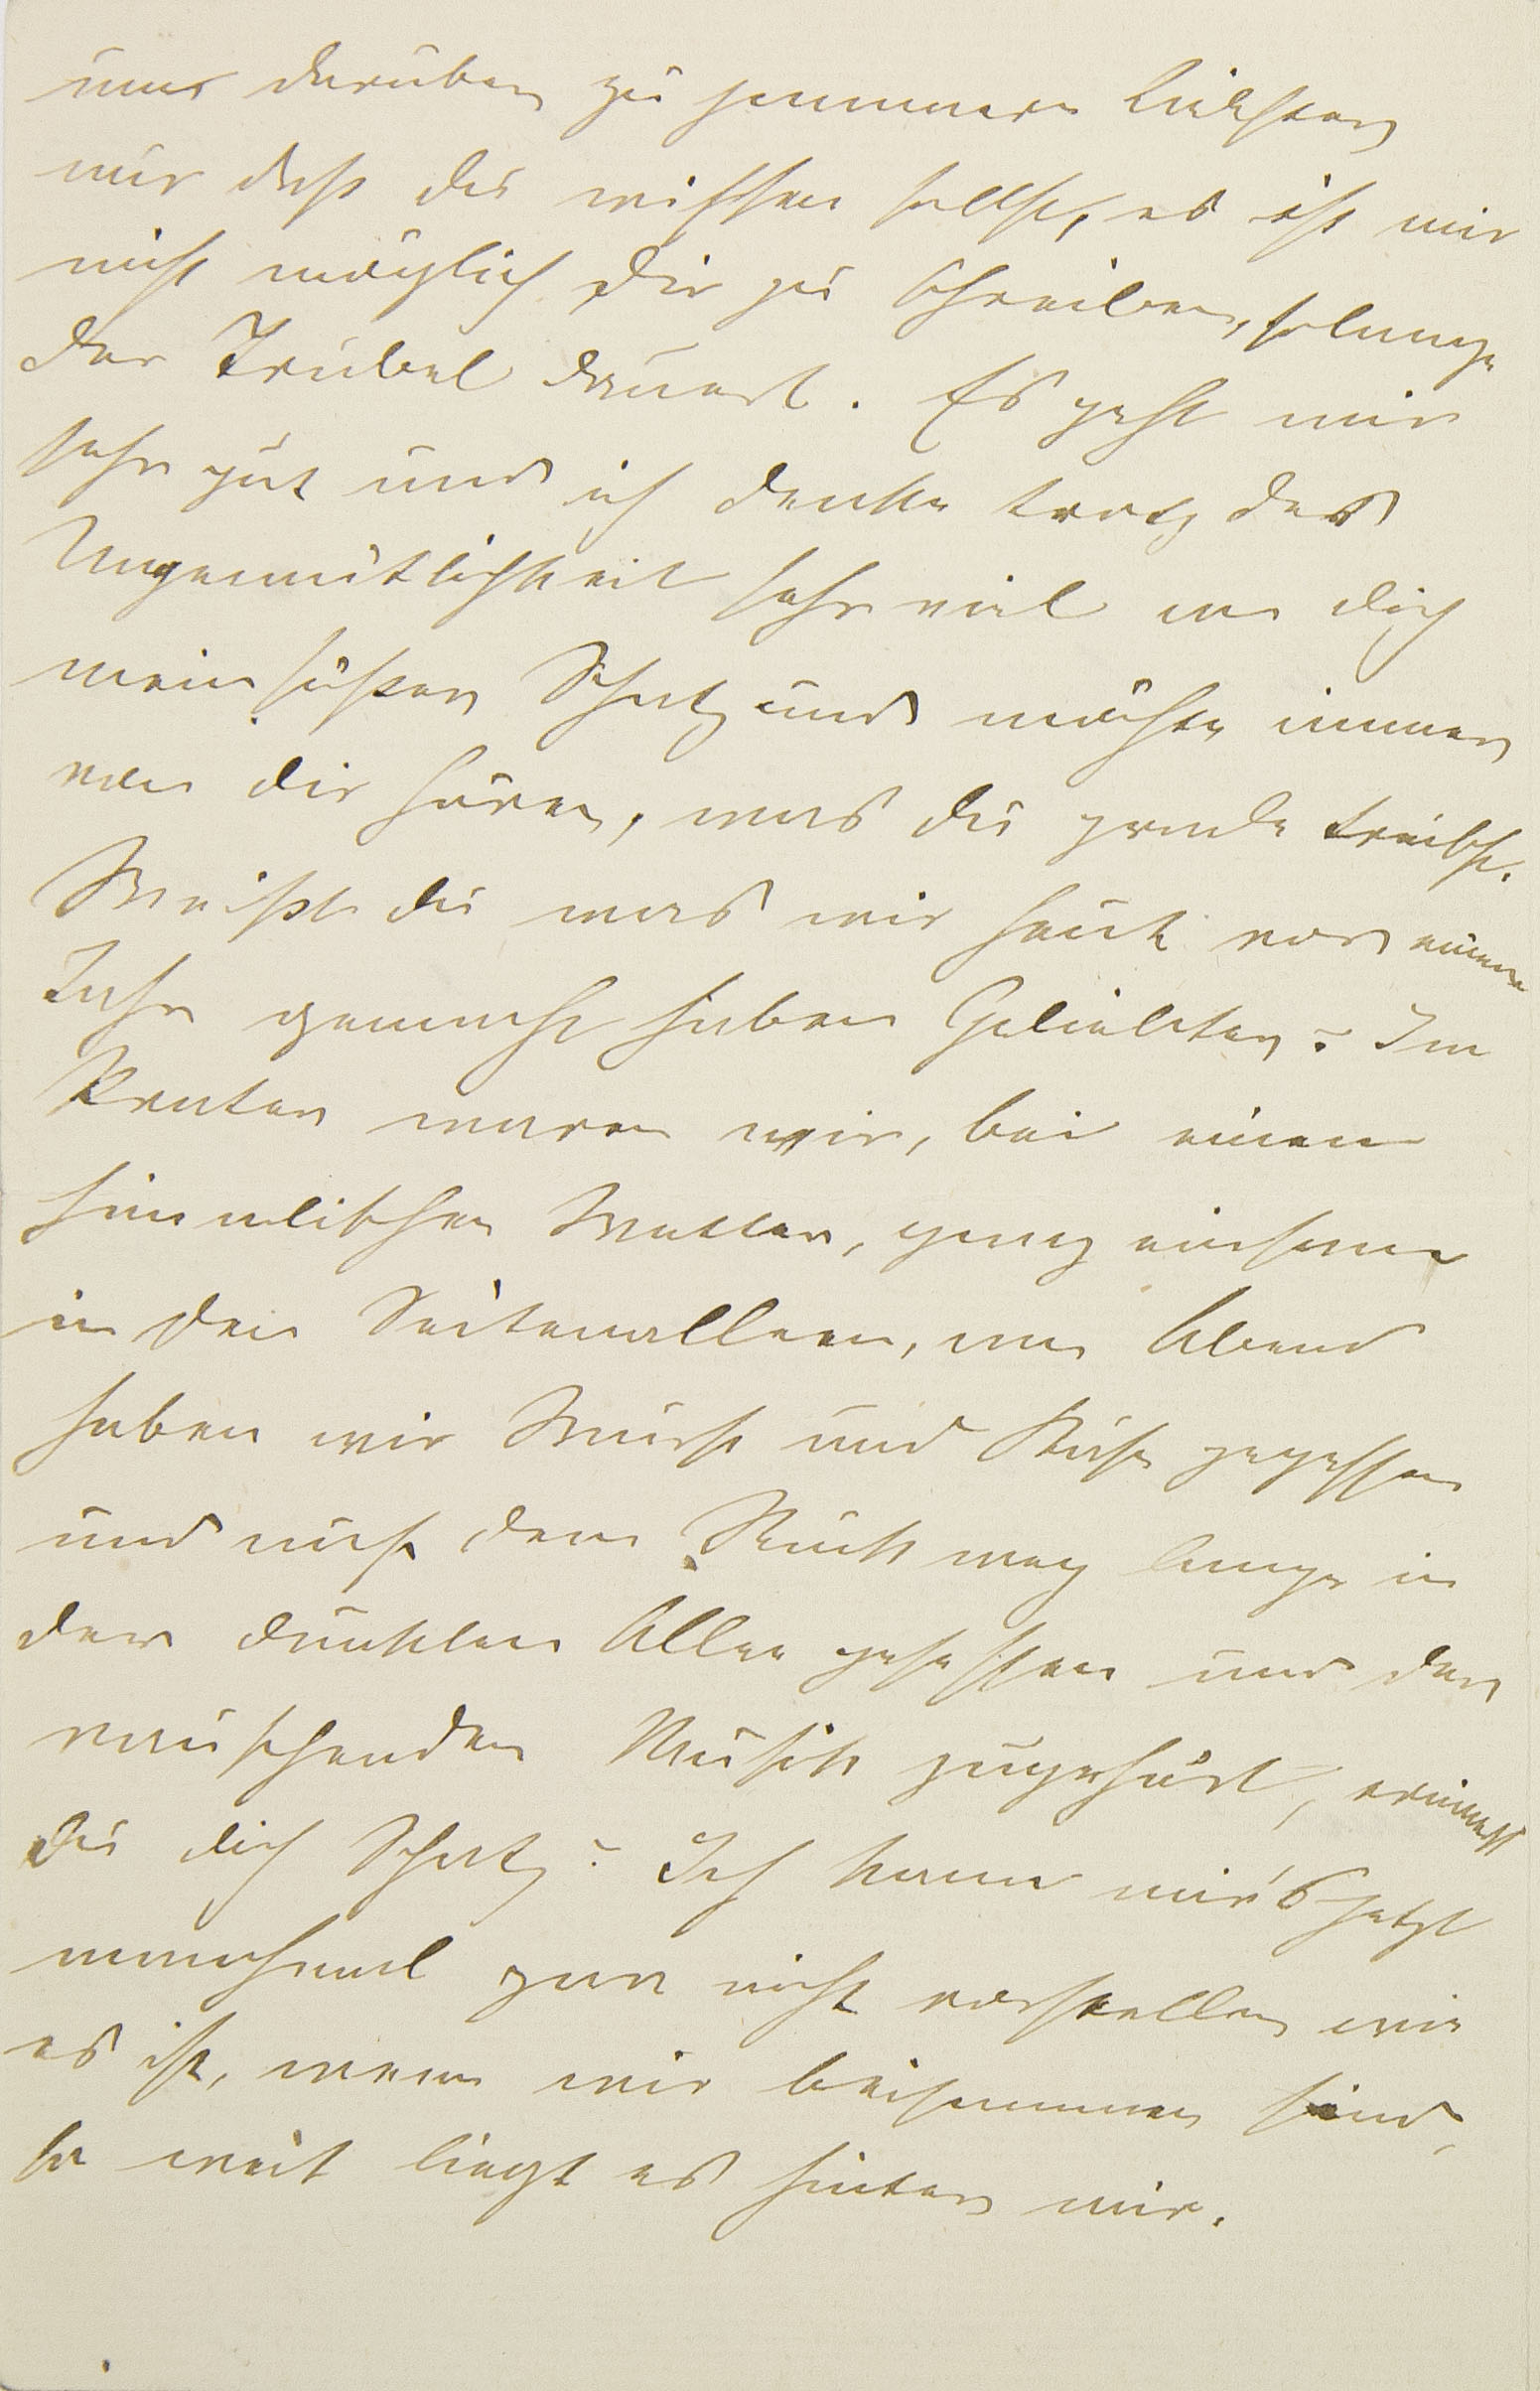 uns darüber zu jammern Liebster
nur daß du wissen sollst, es ist mir
nicht möglich dir zu schreiben, solange
der Trubel dauert. Es geht mir
sehr gut und ich denke trotz der
Ungemütlichkeit sehr viel an dich
mein süßer Schatz und möchte immer
von dir hören, was du grade treibst.
Weißt du was wir heut vor einem
Jahr gemacht haben Geliebter? Im
Prater waren wir, bei einem
himmlischen Wetter, ganz einsam
in den Seitenalleen, am Abend
haben wir Wurst und Käse gegessen
und auf dem Rückweg lange in
der dunklen Allee gesessen und der
rauschenden Musik zugehört, erinnerst
du dich Schatz? Ich kann mir's jetzt
manchmal gar nicht vorstellen wie
es ist, wenn wir beisammen sind,
so weit liegt es hinter mir.